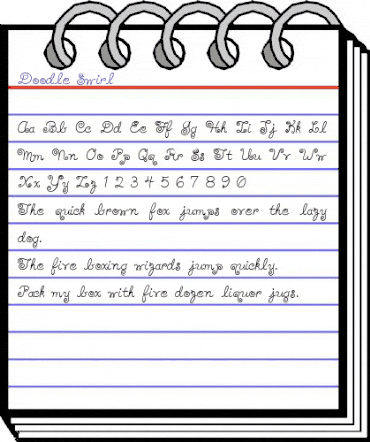 Doodle Swirl
Aa Bb Cc Dd Ee Ff Gg Hh Ii Jj Kk Ll
Mm Nn Oo Pp Qq Rr Ss Tt Uu Vv Ww
Xx Yy Zz 1 2 3 4 5 6 7 8 9 0
The quick brown fox jumps over the lazy
dog.
The five boxing wizards jump quickly.
Pack my box with five dozen liquor jugs.